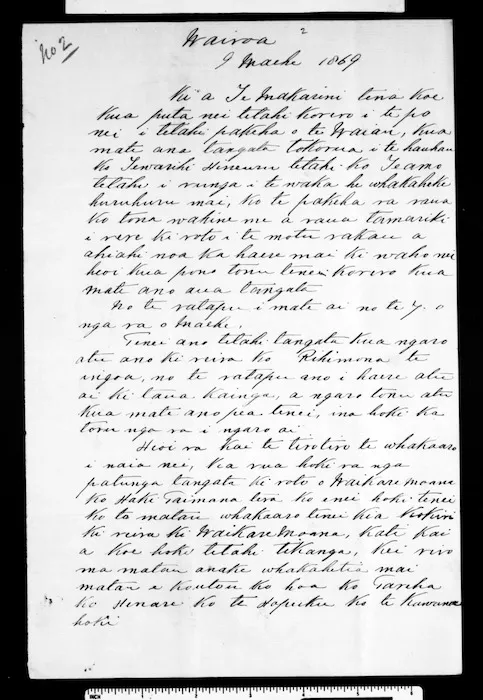 No 2
Wairoa 2
9 Maehe 1869
Ki a Te Makarini tena koe
Kua puta nei tetahi korero i te po
nei i tetahi pakeha o te Waiau, kua
mate ana tangata tokorua i te hauhau
ko Tewarihi Hineuru tetahi ko Teamo
tetahi i runga i te waka he whakaheke
huruhuru mai, ko te pakeha ra raua
ko tona wahine me a raua tamariki
i rere ki roto i te motu rakau a
ahiahi noa ka haere mai ki waho nei
heoi kua pono tonu tenei korero kua
mate ano aua tangata
No te ratapu i mate ai no te 7 o
nga ra o Maehe.
Tenei ano tetahi tangata kua ngaro
atu ano ki reira ko Rihimona te
ingoa, no te ratapu ano i haere atu
ai ki tauа kainga, a ngaro tonu atu
kua mate ano pea tenei, ina hoki ka
toru nga ra i ngaro ai
Heoi ra kai te tirotiro te whakaaro
i naia nei, ka rua hoki ra nga
patunga tangata ki roto o Waikaremoana
ko Haki Taimana tera ko enei hoki tenei
ko ta matau whakaaro tenei kia kokiri
ki reira ki Waikare Moana, kati kai
a koe hoki tetahi tikanga, kei riro
ma matau anake whakahetia mai
matau e koutou ko hoa ko Tareha
ko Henare ko te Hapuku ko te Kawana
hoki